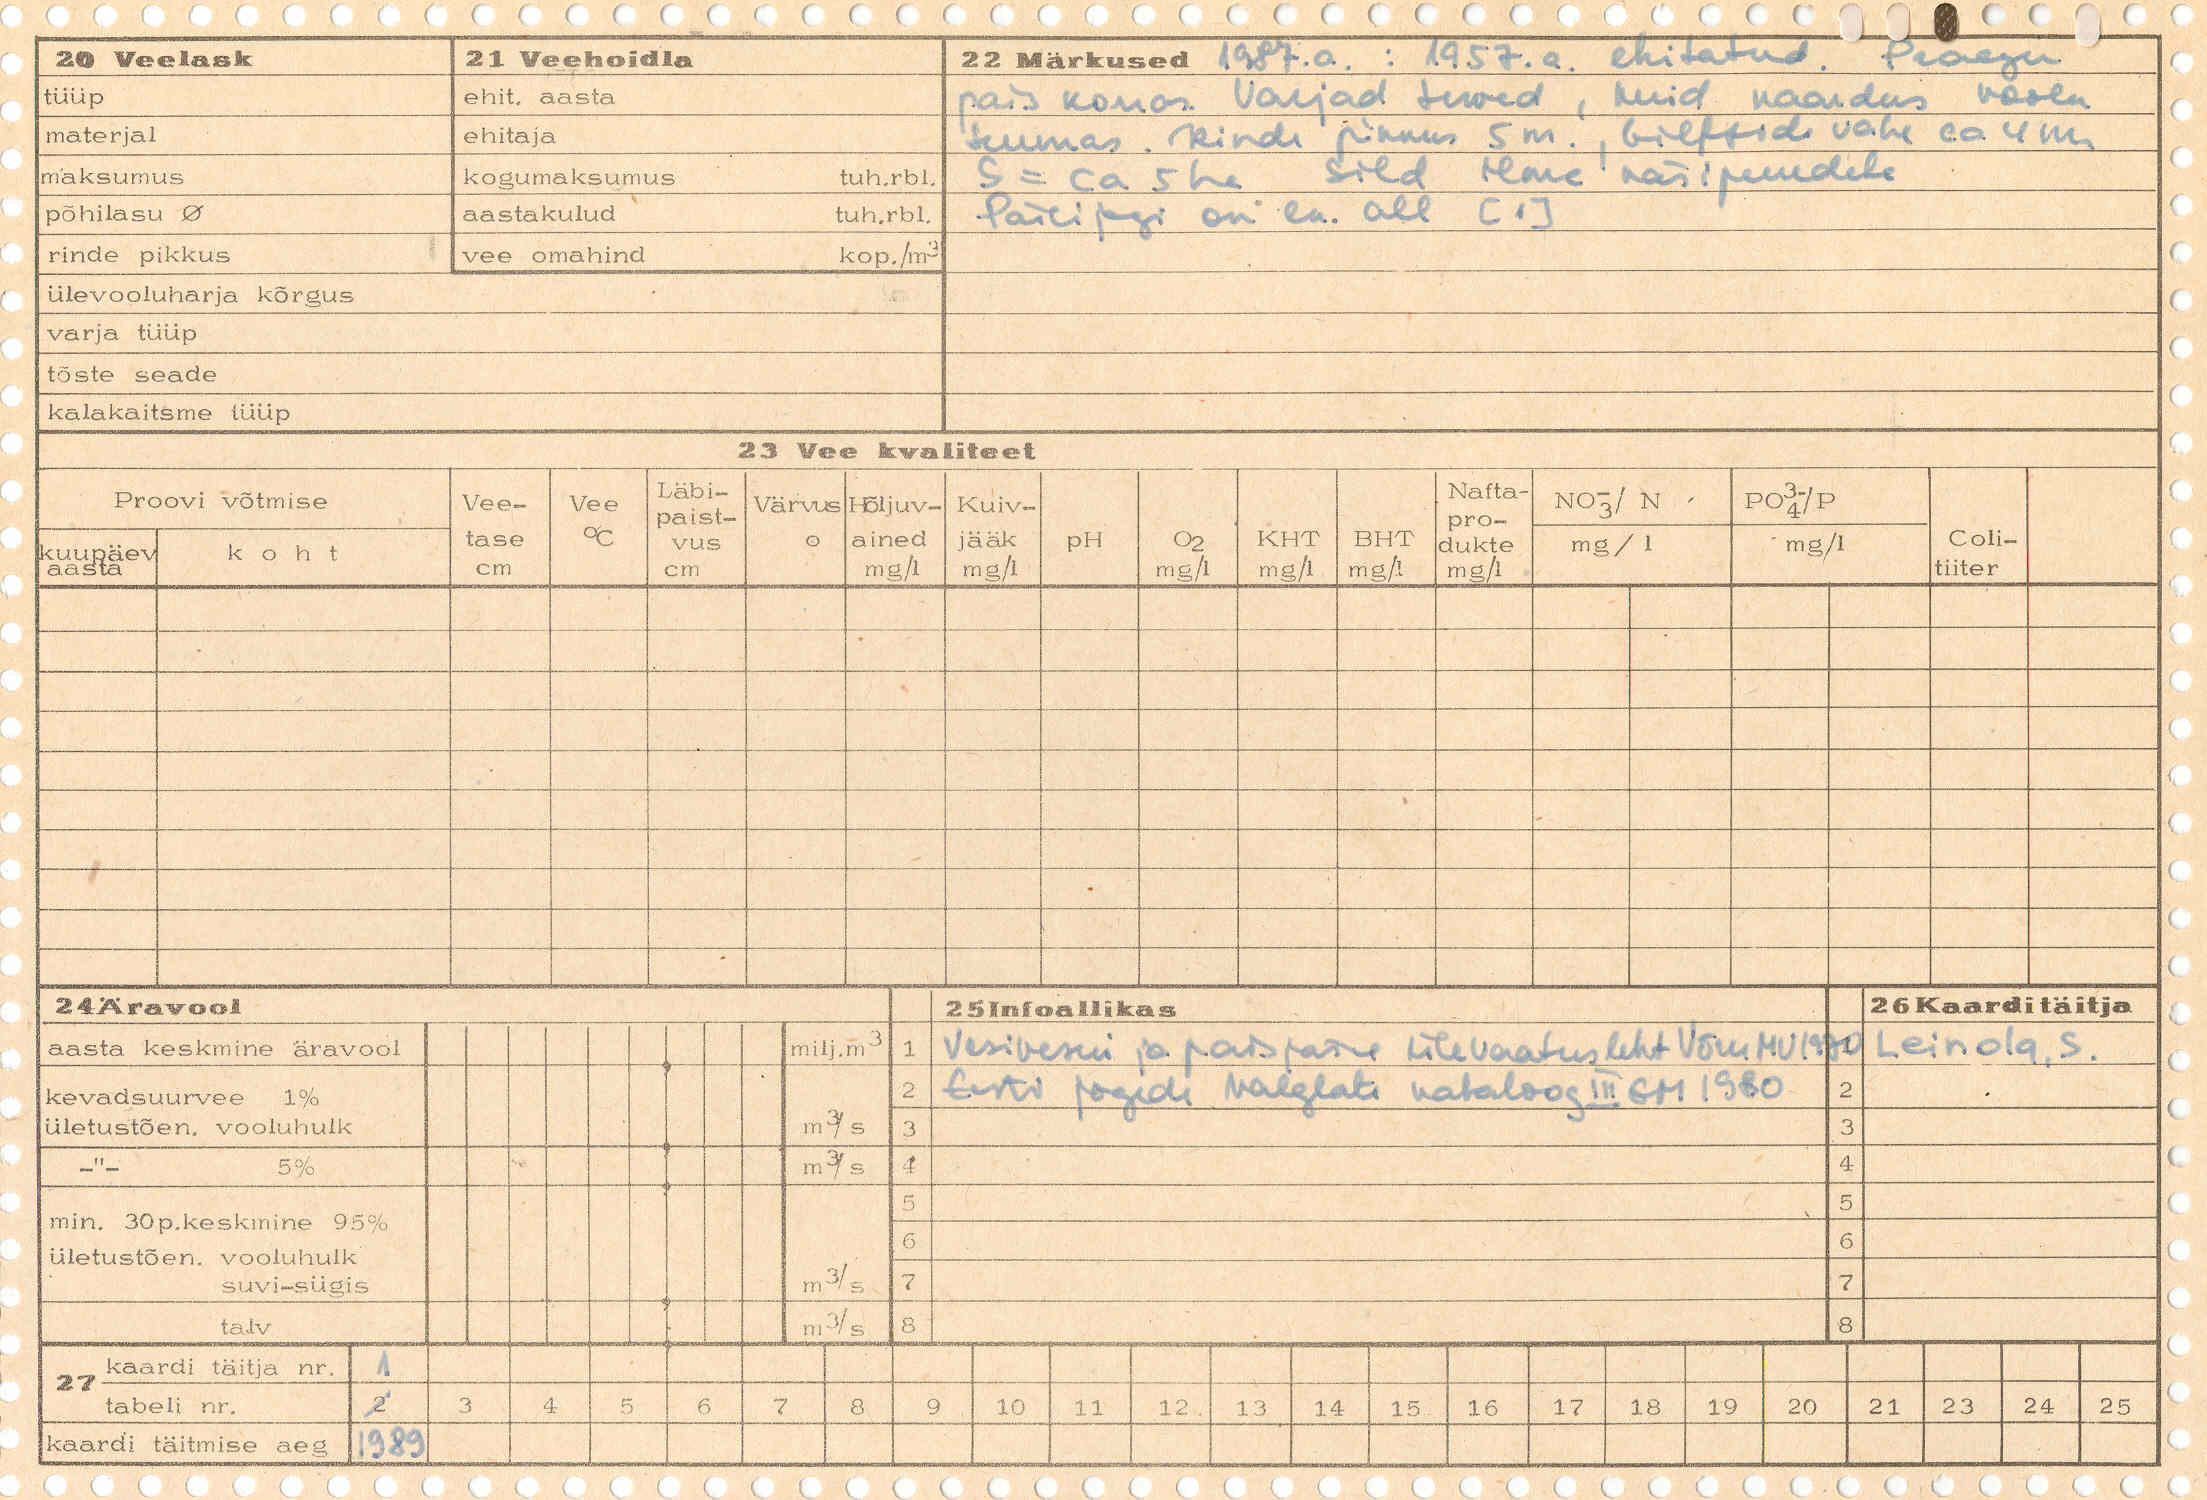 20 Veelask
tüüp
materjal
maksumus
põhilasu Ø
rinde pikkus
ülevooluharja kõrgus
varja tüüp
tõste seade
kalakaitsme tüüp
21 Veehoidla
ehit. aasta
ehitaja
kogumaksumus tuh.rbl.
aastakulud tuh.rbl.
vee omahind kop./m³
22 Märkused 1987.a. : 1957.a. ehitatud. Praegu
pais korras. Varjad terved, kuid kaardus
Rinde pikkus 5 m., vahe ca 4 m
S = ca 5 ha Sild ilma käsipuudeta
Päritjõgi on all [1]
23 Vee kvaliteet
Proovi võtmise
kuupäev
aasta
koht
Vee-
tase
cm
Vee
°C
Läbi-
paist-
vus
cm
Värvus
o
Hõljuv-
ained
mg/l
Kuiv-
jääk
mg/l
pH
O₂
mg/l
KHT
mg/l
BHT
mg/l
Nafta-
pro-
dukte
mg/l
NO₃⁻/ N
mg/l
PO₄³⁻/P
mg/l
Coli-
tiiter
24 Äravool
aasta keskmine äravool milj.m³
kevadsuurvee 1%
ületustõen. vooluhulk m³/s
-"- 5% m³/s
min. 30p.keskmine 95%
ületustõen. vooluhulk
suvi-sügis m³/s
talv m³/s
25 Infoallikas
1 Vesiveski ja paisjärve ülevaatusleht Võru MV
2 Eesti jõgede valglate kataloog III EM 1980
3
4
5
6
7
8
26 Kaarditäitja
Leinola, S.
2
3
4
5
6
7
8
27 kaardi täitja nr. 1
tabeli nr. 2 3 4 5 6 7 8 9 10 11 12 13 14 15 16 17 18 19 20 21 23 24 25
kaardi täitmise aeg 1989